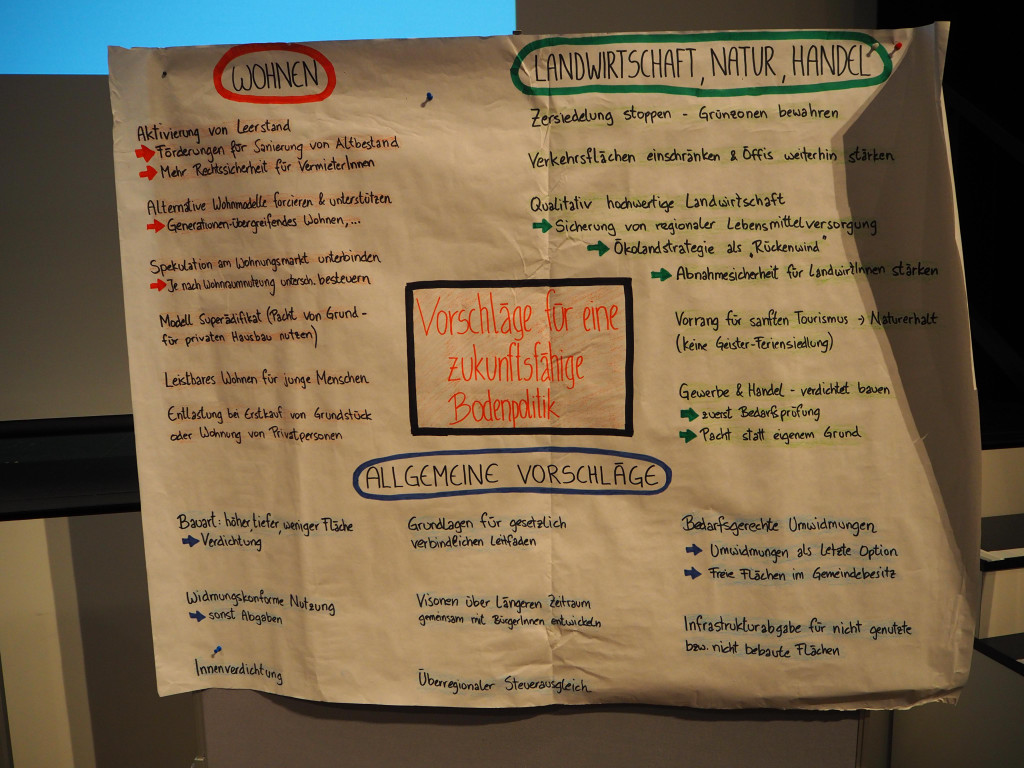 WOHNEN
Aktivierung von Leerstand
→ Förderungen für Sanierung von Altbestand
→ Mehr Rechtssicherheit für VermieterInnen
Alternative Wohnmodelle forcieren & unterstützen
→ Generationen-übergreifendes Wohnen,...
Spekulation am Wohnungsmarkt unterbinden
→ Je nach Wohnraumnutzung untersch. besteuern
Modell Superädifikat (Pacht von Grund -
für privaten Hausbau nutzen)
Leistbares Wohnen für junge Menschen
Entlastung bei Erstkauf von Grundstück
oder Wohnung von Privatpersonen
LANDWIRTSCHAFT, NATUR, HANDEL
Zersiedelung stoppen - Grünzonen bewahren
Verkehrsflächen einschränken & Öffis weiterhin stärken
Qualitativ hochwertige Landwirtschaft
→ Sicherung von regionaler Lebensmittelversorgung
→ Ökolandstrategie als „Rückenwind"
→ Abnahmesicherheit für LandwirtInnen stärken
Vorrang für sanften Tourismus → Naturerhalt
(keine Geister-Feriensiedlung)
Gewerbe & Handel - verdichtet bauen
→ zuerst Bedarfsprüfung
→ Pacht statt eigenem Grund
Vorschläge für eine
zukunftsfähige
Bodenpolitik
ALLGEMEINE VORSCHLÄGE
Bauart: höher, tiefer, weniger Fläche
→ Verdichtung
Widmungskonforme Nutzung
→ sonst Abgaben
Innenverdichtung
Grundlagen für gesetzlich
verbindlichen Leitfaden
Visonen über Längeren Zeitraum
gemeinsam mit BürgerInnen entwickeln
Überregionaler Steuerausgleich
Bedarfsgerechte Umwidmungen
→ Umwidmungen als Letzte Option
→ Freie Flächen im Gemeindebesitz
Infrastrukturabgabe für nicht genutzte
bzw. nicht bebaute Flächen